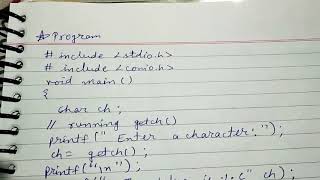 * Program
# include <stdio.h>
# include <conio.h>
void main()
{
char ch;
// running getch()
printf(" Enter a character: ");
ch= getch();
printf("\n");
ch